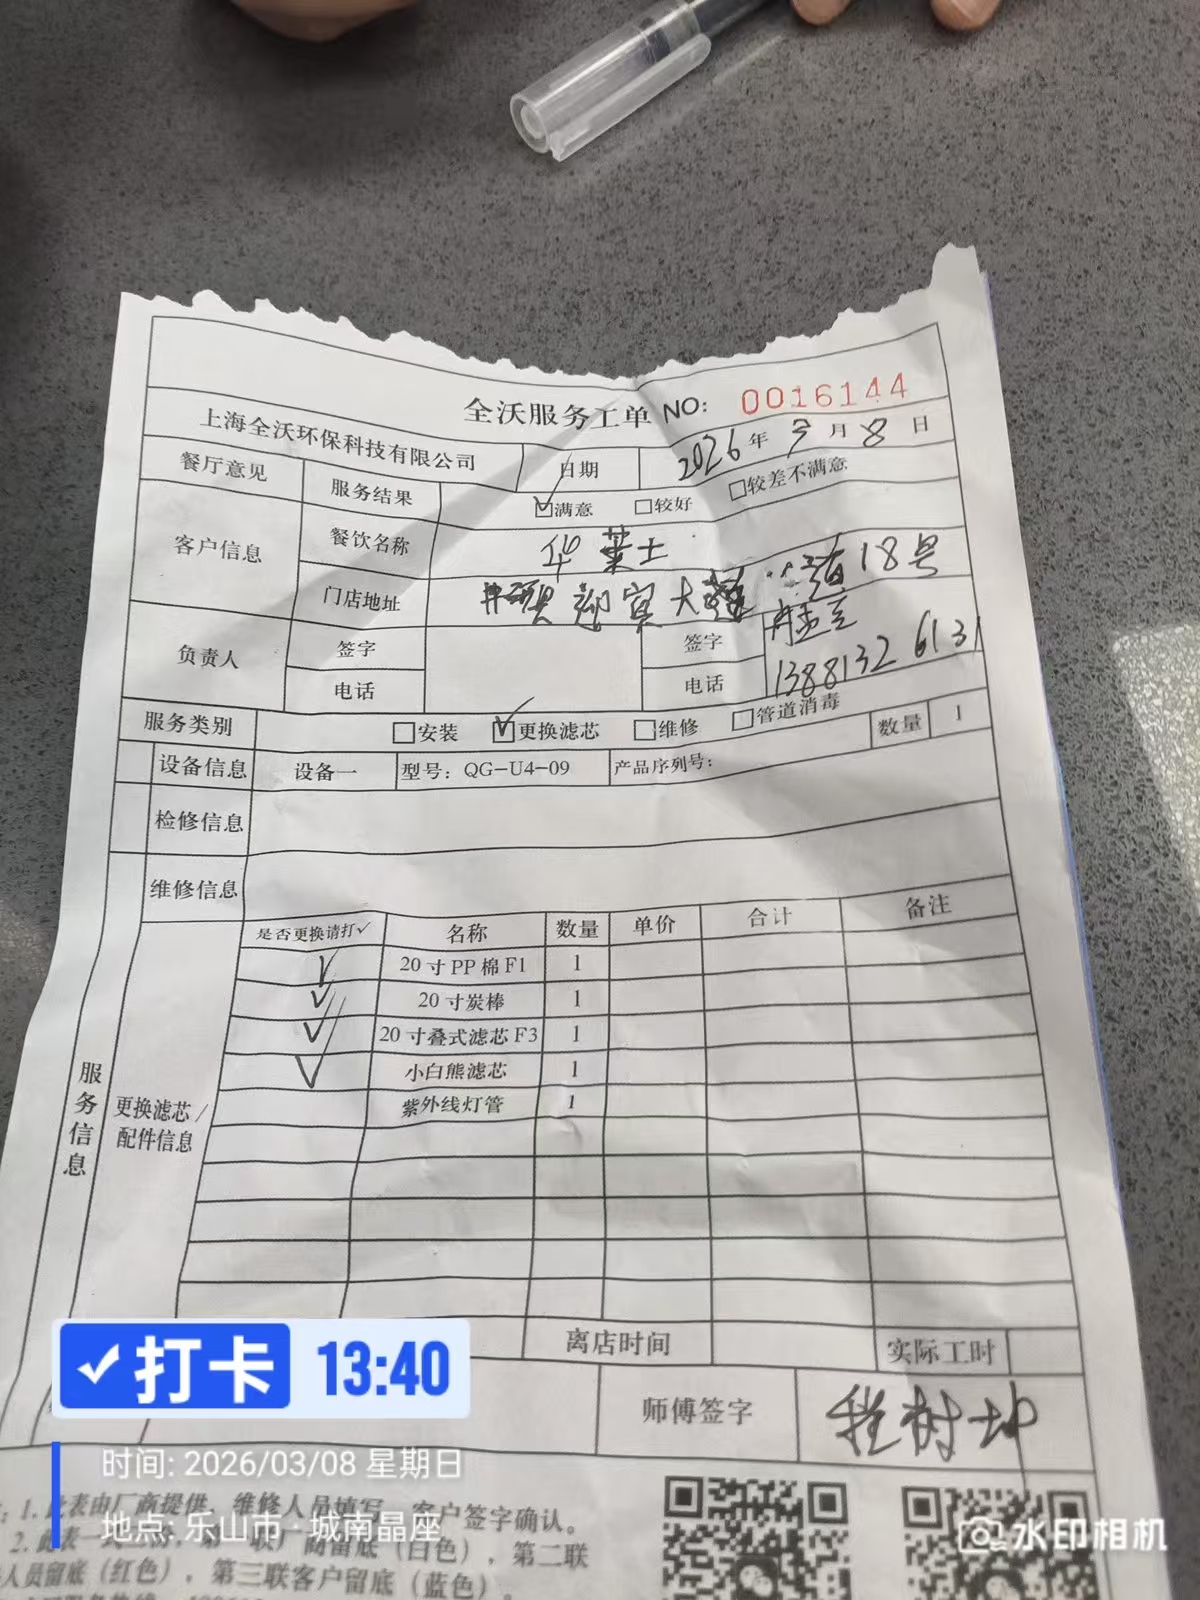 全沃服务工单 NO: 0016144
上海全沃环保科技有限公司 日期 2026年3月8日
餐厅意见 服务结果 ☑满意 □较好 □较差不满意
客户信息 餐饮名称 华莱士
门店地址 井研 迎宾大道 18号
负责人 签字 签字
电话 电话 13881326131
服务类别 □安装 ☑更换滤芯 □维修 □管道消毒
设备信息 设备一 型号: QG-U4-09 产品序列号: 数量 1
检修信息
维修信息
是否更换请打✓ 名称 数量 单价 合计 备注
✓ 20寸PP棉F1 1
✓ 20寸炭棒 1
✓ 20寸叠式滤芯F3 1
✓ 小白熊滤芯 1
紫外线灯管 1
服务信息
更换滤芯/
配件信息
离店时间 实际工时
师傅签字 程树坤
✓打卡 13:40
时间: 2026/03/08 星期日
地点: 乐山市·城南晶座
1. 此表由厂商提供，维修人员填写，客户签字确认。
2. 此表一式三份，第一联厂商留底（白色），第二联
人员留底（红色），第三联客户留底（蓝色）。
水印相机